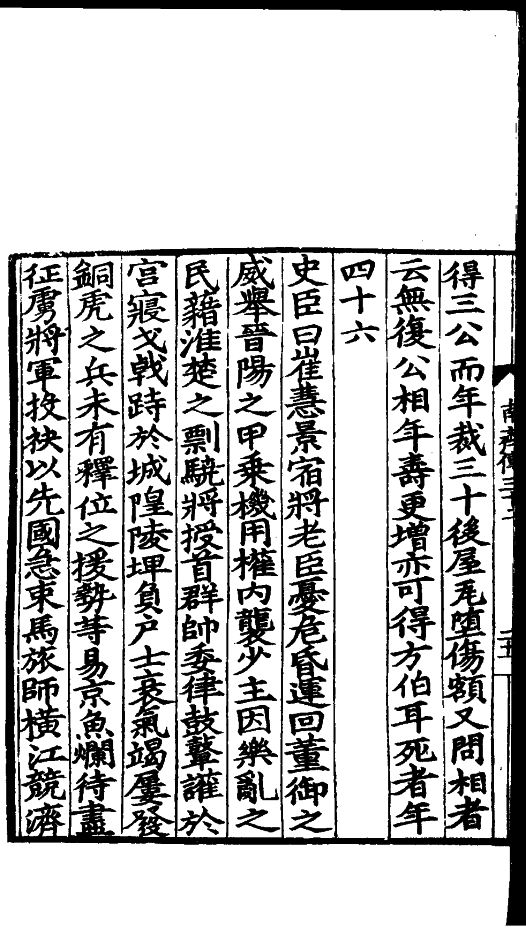 得三公而年裁三十後屋瓦墮傷額又問相者
云無復公相年壽更增亦可得方伯耳死者年
四十六
史臣曰崔慧景宿將老臣憂危昏運回董御之
威舉晉陽之甲乘機用權内襲少主因樂亂之
民藉淮楚之剽驍將授首群帥委律鼓鼙讙於
宮寢戈戟跱於城隍陵埤負戶士衰氣竭屢發
銅虎之兵未有釋位之援勢等易京魚爛待盡
征虜將軍投袂以先國急束馬旅師橫江競濟